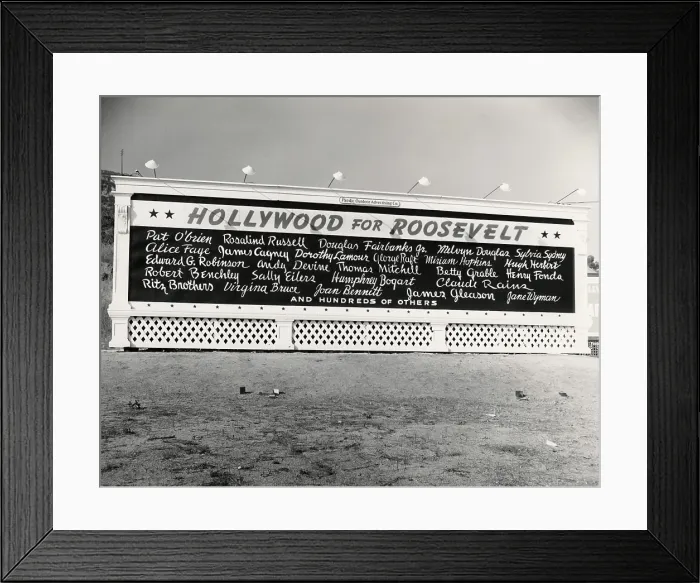 Pacific Outdoor Advertising Co.
★ ★ HOLLYWOOD FOR ROOSEVELT ★ ★
Pat O'brien Rosalind Russell Douglas Fairbanks Jr. Melvyn Douglas Sylvia Sydney
Alice Faye James Cagney Dorothy Lamour George Raft Miriam Hopkins Hugh Herbert
Edward G. Robinson Andy Devine Thomas Mitchell Betty Grable Henry Fonda
Robert Benchley Sally Eilers Humphrey Bogart Claude Rains
Ritz Brothers Virginia Bruce Joan Bennett James Gleason Jane Wyman
AND HUNDREDS OF OTHERS